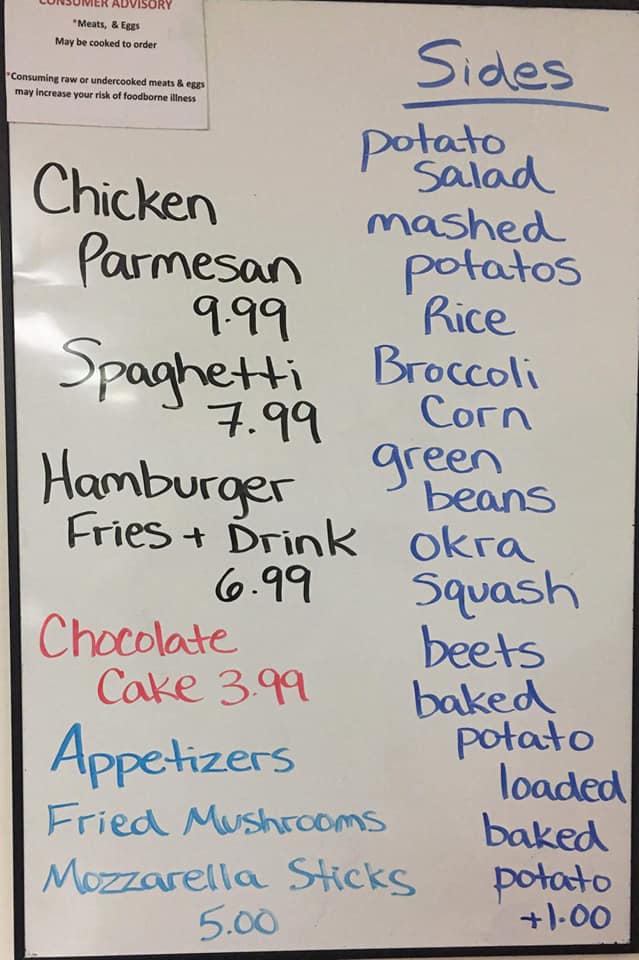 CONSUMER ADVISORY
*Meats, & Eggs
May be cooked to order
*Consuming raw or undercooked meats & eggs
may increase your risk of foodborne illness
Chicken
Parmesan
9.99
Spaghetti
7.99
Hamburger
Fries + Drink
6.99
Chocolate
Cake 3.99
Appetizers
Fried Mushrooms
Mozzarella Sticks
5.00
Sides
potato
salad
mashed
potatos
Rice
Broccoli
Corn
green
beans
okra
squash
beets
baked
potato
loaded
baked
potato
+1.00